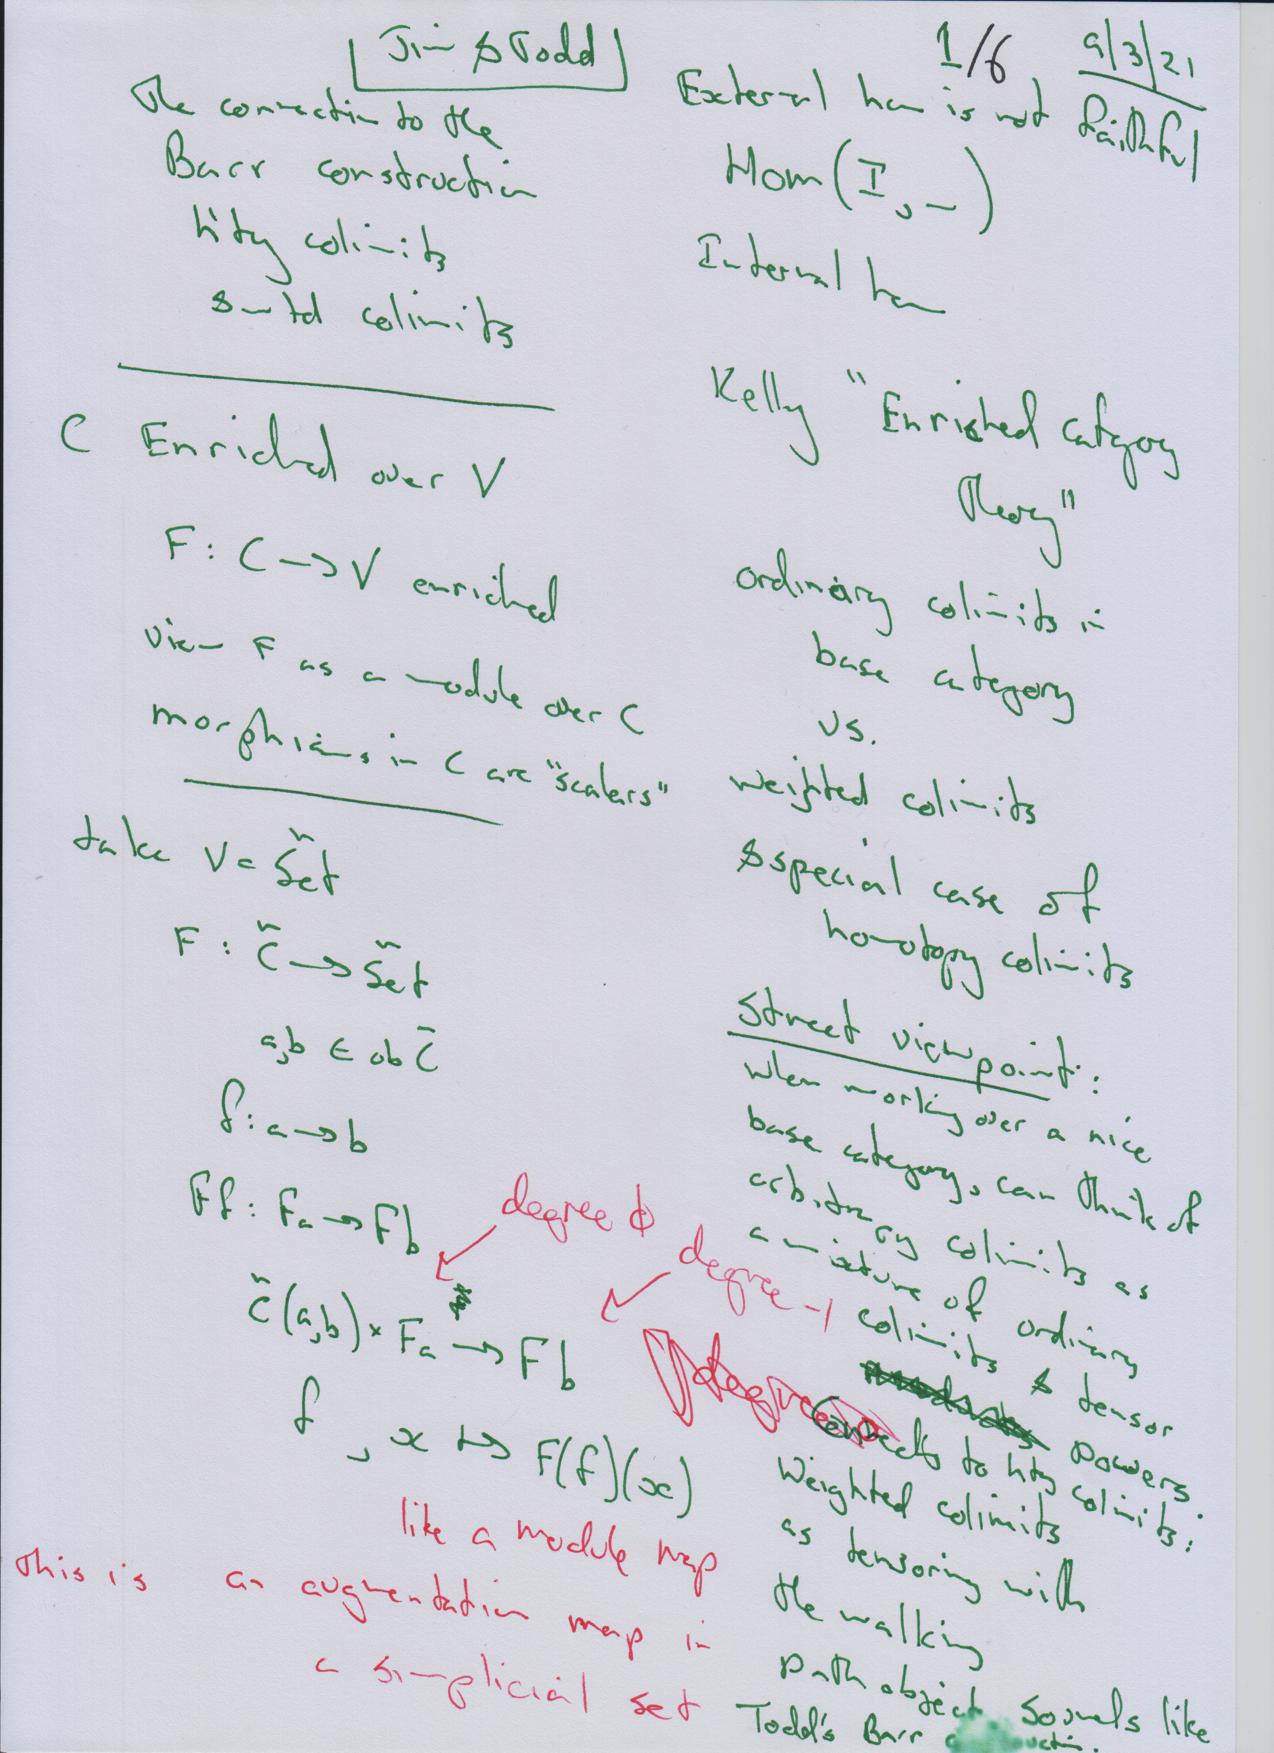 Jim & Todd
1/6
9/3/21
The connection to the
Barr construction
h'tpy colimits
& wtd colimits
C Enriched over V
F : C → V enriched
view F as a module over C
morphisms in C are "scalars"
take V = Set
F : C → Set
a,b ∈ ob C
f : a → b
Ff : Fa → Fb
degree 0
degree -1
C(a,b) × Fa → Fb
f , x ↦ F(f)(x)
like a module map
this is an augmentation map in
a simplicial set
External hom is not faithful
Hom(I, -)
Internal hom
Kelly "Enriched category
Theory"
ordinary colimits in
base category
vs.
weighted colimits
& special case of
homotopy colimits
Street viewpoint:
when working over a nice
base category, can think of
arbitrary colimits as
a mixture of ordinary
colimits & tensor
powers.
connects to htpy colimits:
Weighted colimits
as tensoring with
the walking
path object sounds like
Todd's Barr construction.